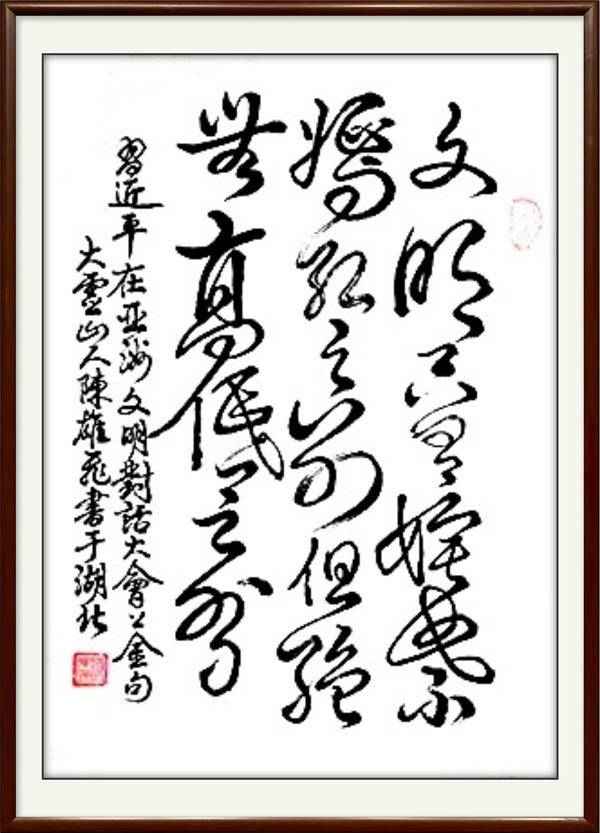 文明只是姹紫
嫣紅之别但絕
無高低之分
習近平在亞洲文明對話大會上金句
大靈山人陳雄飛書于湖北